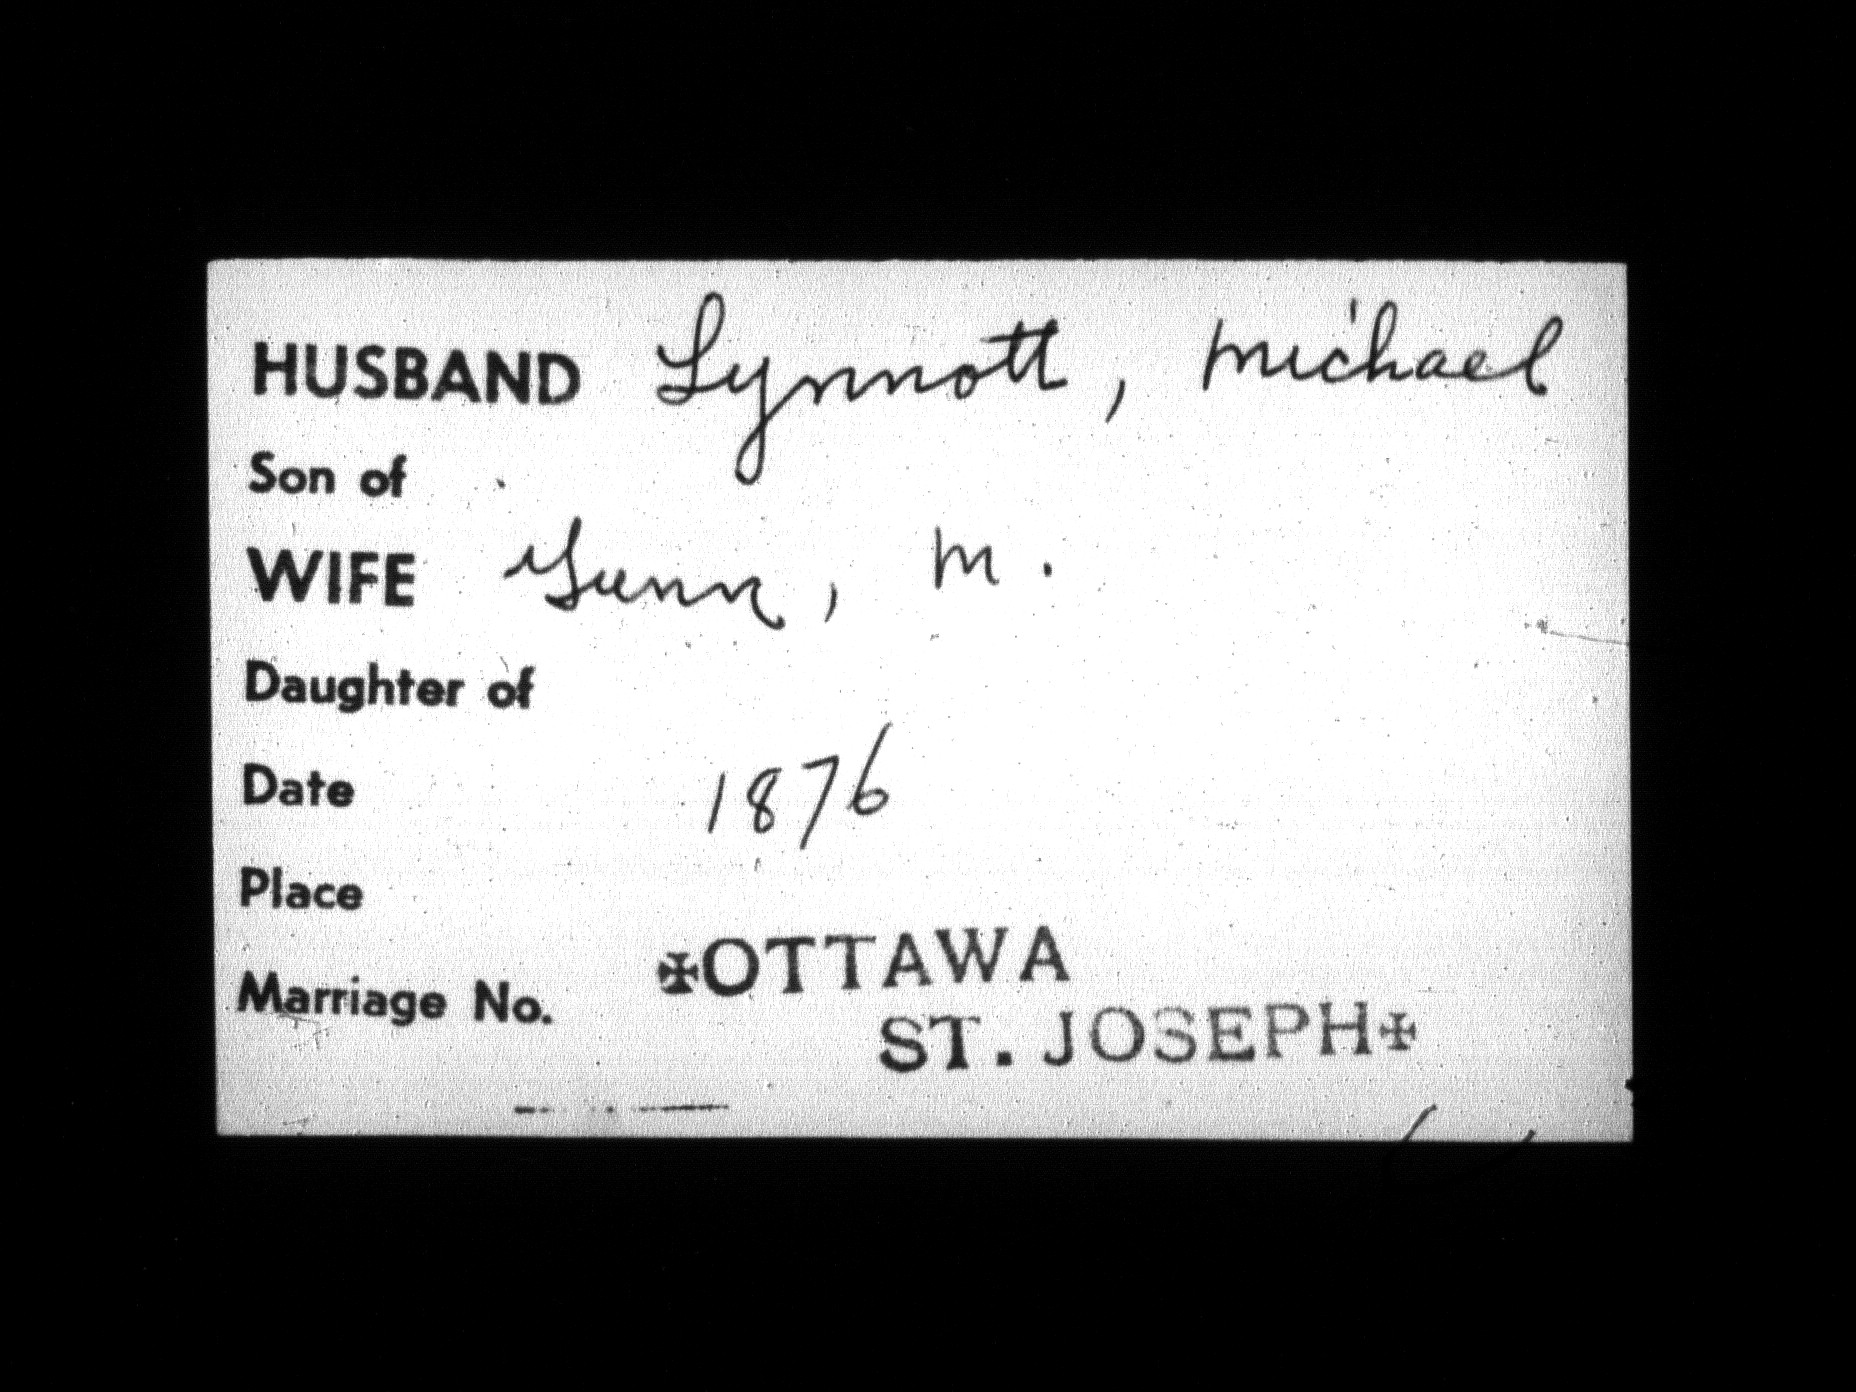 HUSBAND Lynnott, Michael
Son of
WIFE Gunn, M.
Daughter of
Date 1876
Place
✠OTTAWA
Marriage No.
ST. JOSEPH✠